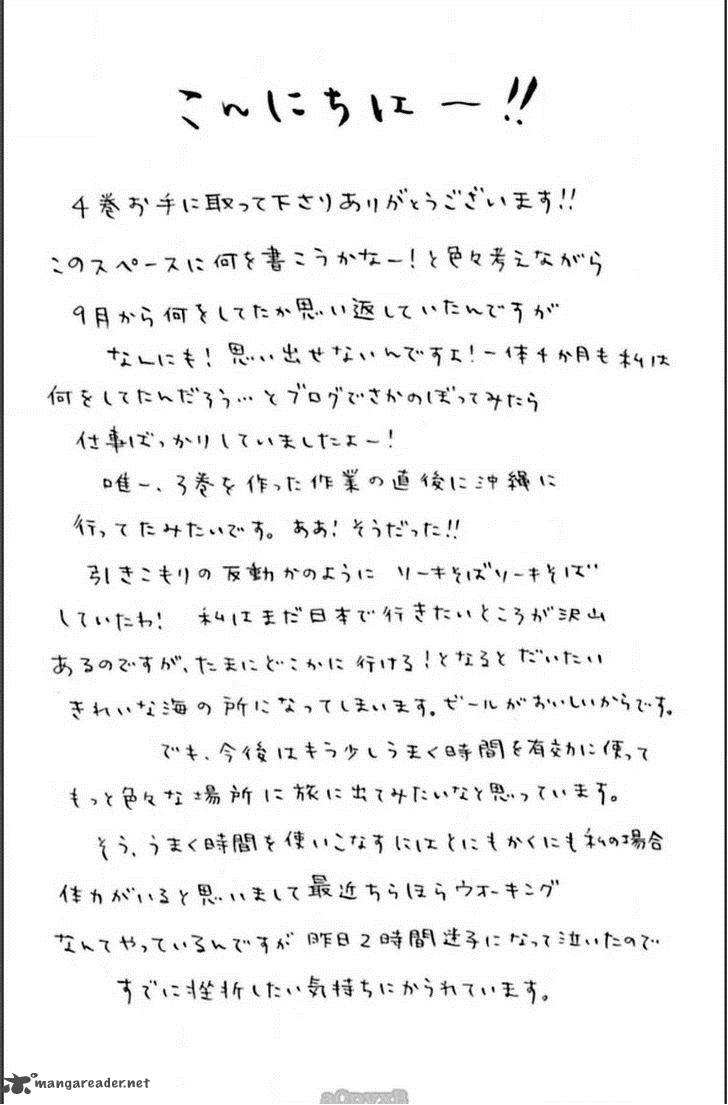 こんにちはー!!
4巻お手に取って下さりありがとうございます!!
このスペースに何を書こうかなー!と色々考えながら
9月から何をしてたか思い返していたんですが
なんにも!思い出せないんですよ!一体4か月も私は
何をしてたんだろう…とブログでさかのぼってみたら
仕事ばっかりしていましたよー!
唯一、3巻を作った作業の直後に沖縄に
行ってたみたいです。ああ!そうだった!!
引きこもりの反動かのように ソーキそばソーキそば
していたわ! 私はまだ日本で行きたいところが沢山
あるのですが、たまにどこかに行ける!となるとだいたい
きれいな海の所になってしまいます。ビールがおいしいからです。
でも、今後はもう少しうまく時間を有効に使って
もっと色々な場所に旅に出てみたいなと思っています。
そう、うまく時間を使いこなすにはとにもかくにも私の場合
体力がいると思いまして最近ちらほらウオーキング
なんてやっているんですが昨日2時間迷子になって泣いたので
すでに挫折したい気持ちにかられています。
mangareader.net